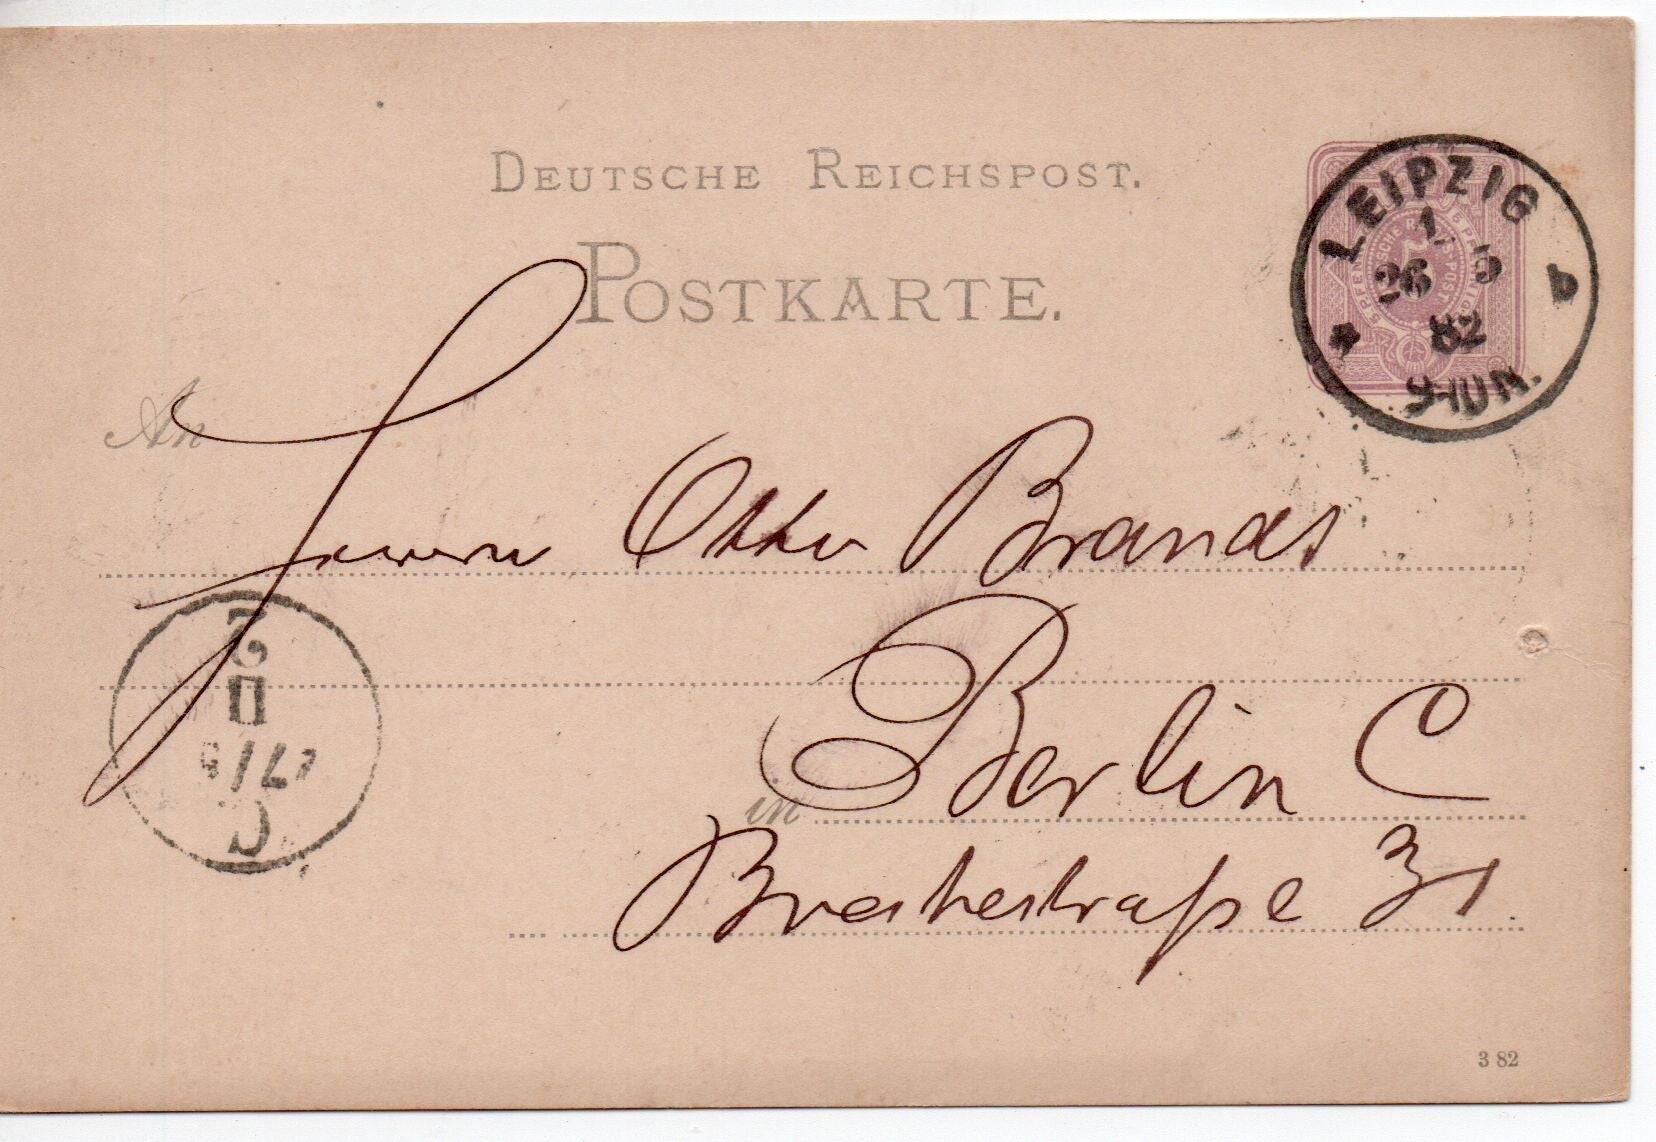 DEUTSCHE REICHSPOST.
POSTKARTE.
LEIPZIG
1.
26 5
82
9-10N.
An
Herrn Otto Brandt
in Berlin C
Breitestraße 31.
2
27/5
C
3 82